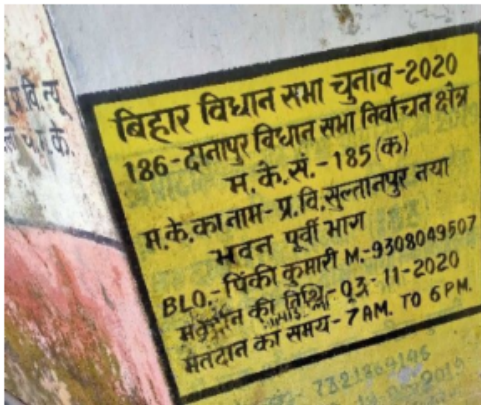 बिहार विधान सभा चुनाव-2020
186-दानापुर विधान सभा निर्वाचन क्षेत्र
म.के.सं.-185(क)
म.के.का नाम-प्र.वि.सुल्तानपुर नया
भवन पूर्वी भाग
BLO.-पिंकी कुमारी M.-9308049507
मतदान की तिथि-03-11-2020
मतदान का समय-7AM. TO 6PM.